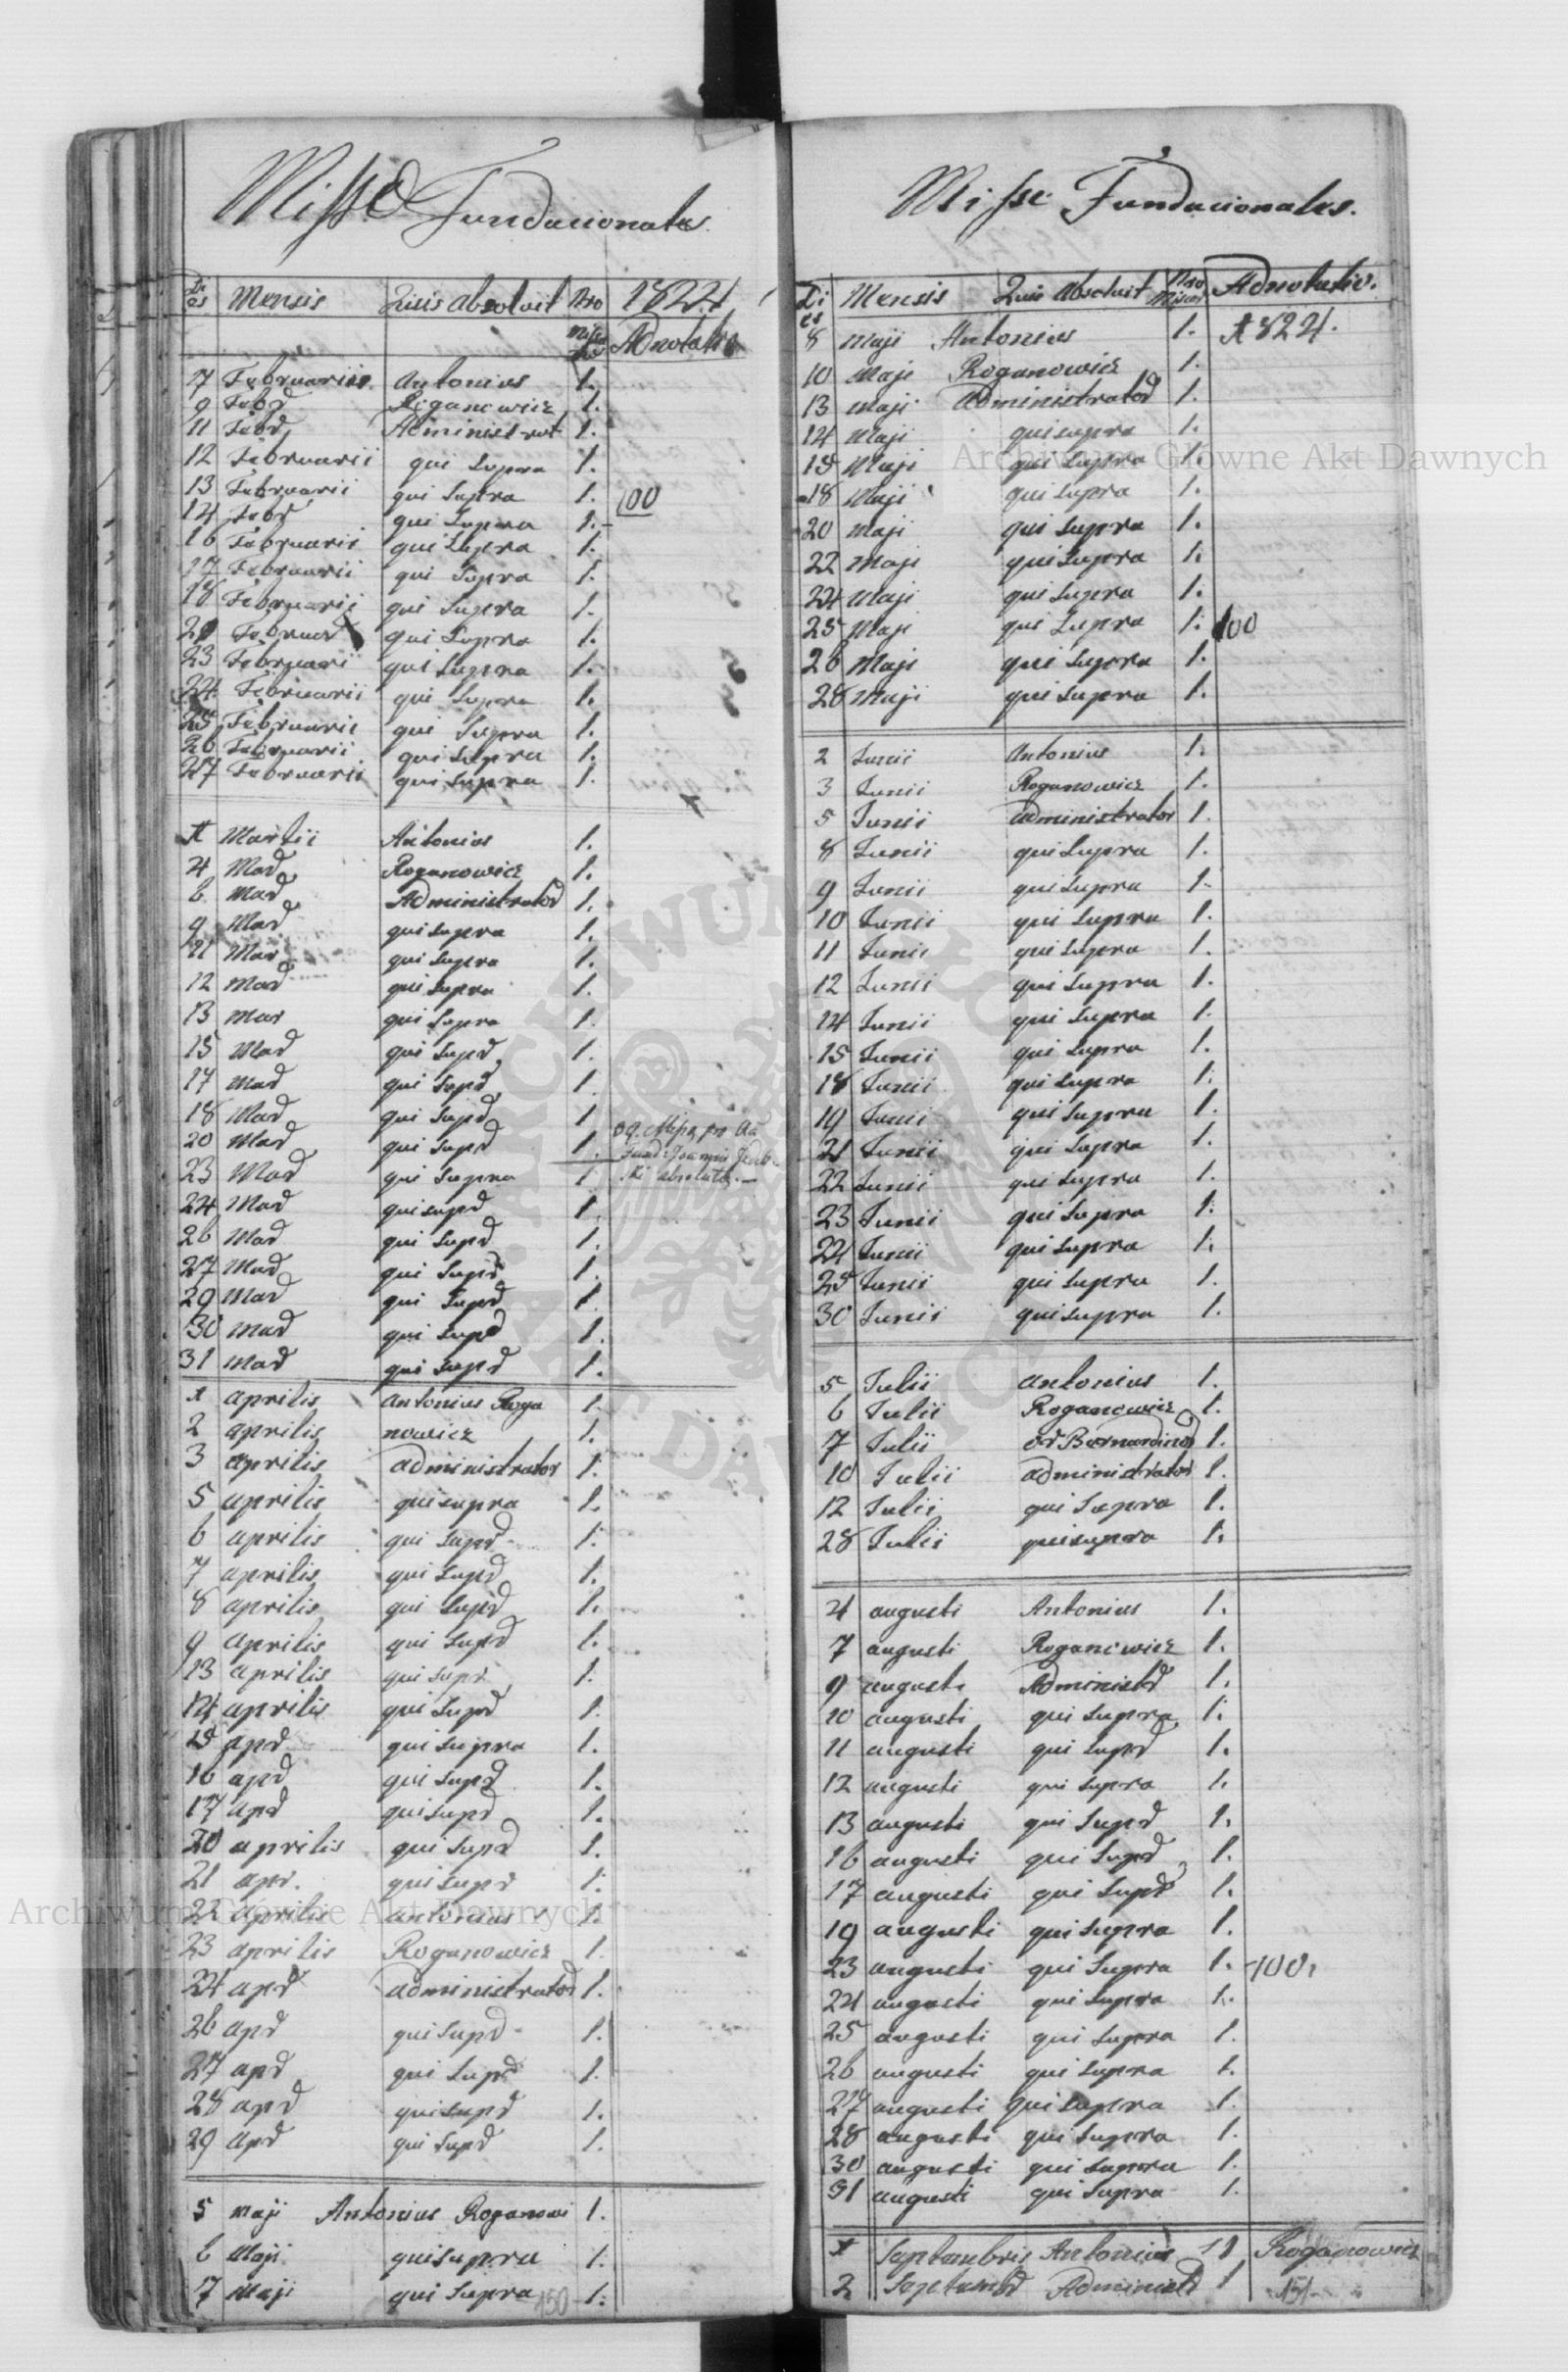 Missæ Fundacionales
Dies Mensis Quis absolvit Nro Missar 1824
Adnotatio
7 Februarii Antonius 1.
9 Febr Roganowicz 1.
11 Febr Administrat 1.
12 Februarii qui Supra 1.
13 Februarii qui Supra 1. 100
14 Febr qui Supra 1.
16 Februarii qui Supra 1.
17 Februarii qui Supra 1.
18 Februarii qui Supra 1.
21 Februar qui Supra 1.
23 Februarii qui Supra 1.
24 Februarii qui Supra 1.
25 Februarii qui Supra 1.
26 Februarii qui Supra 1.
27 Februarii qui Supra 1.
1 Martii Antonius 1.
4 Mar Roganowicz 1.
6 Mar Administrator 1.
9 Mar qui Supra 1.
11 Mar qui Supra 1.
12 Mar qui Supra 1.
13 Mar qui Supra 1.
15 Mar qui Supr 1.
17 Mar qui Supr 1.
18 Mar qui Supr 1
20 Mar qui Supr 1.
23 Mar qui Supra 1 absolutæ
24 Mar qui supr 1
26 Mar qui Supr 1.
27 Mar qui Supr 1.
29 Mar qui Supr 1
30 Mar qui Supr 1.
31 Mar qui Supr 1.
1 aprilis antonius Roga 1.
2 aprilis nowicz 1.
3 aprilis administrator 1.
5 aprilis qui supra 1.
6 aprilis qui Supr 1.
7 aprilis qui Supr 1.
8 aprilis qui Supr 1.
9 aprilis qui Supr 1.
13 aprilis qui Supr 1.
14 aprilis qui Supr 1.
15 apr qui Supra 1.
16 apr qui Supr 1.
17 apr qui Supr 1.
20 aprilis qui Supr 1.
21 apr. qui Supr 1.
22 aprilis antonius 1.
23 aprilis Roganowicz 1.
24 apr administrator 1.
26 apr qui Supr 1.
27 apr qui Supr 1.
28 apr qui Supr 1.
29 apr qui Supr 1.
5 Maji Antonius Roganowi 1.
6 Maji qui Supra 1.
7 Maji qui Supra 1.
150
Missæ Fundacionales.
Dies Mensis Quis Absolvit Nro Missar Adnotatio.
8 Maji Antonius 1. 1824.
10 Maji Roganowicz 1.
13 Maji administrator 1.
14 Maji qui supra 1.
15 Maji qui Supra 1.
18 Maji qui Supra 1.
20 Maji qui Supra 1.
22 Maji qui Supra 1.
24 Maji qui Supra 1.
25 Maji qui Supra 1. 100
26 Maji qui Supra 1.
28 Maji qui Supra 1.
2 Junii Antonius 1.
3 Junii Roganowicz 1.
5 Junii administrator 1.
8 Junii qui Supra 1.
9 Junii qui Supra 1.
10 Junii qui Supra 1.
11 Junii qui Supra 1.
12 Junii qui Supra 1.
14 Junii qui Supra 1.
15 Junii qui Supra 1.
18 Junii qui Supra 1.
19 Junii qui Supra 1.
21 Junii qui Supra 1.
22 Junii qui Supra 1.
23 Junii qui Supra 1.
24 Junii qui Supra 1.
25 Junii qui Supra 1.
30 Junii qui supra 1.
5 Julii antonius 1.
6 Julii Roganowicz 1.
7 Julii 1.
10 Julii administrator 1.
12 Julii qui Supra 1.
28 Julii qui supra 1.
4 augusti Antonius 1.
7 augusti Roganowicz 1.
9 augusti Administr 1.
10 augusti qui Supra 1.
11 augusti qui Supr 1.
12 augusti qui Supra 1.
13 augusti qui Supr 1.
16 augusti qui Supr 1.
17 augusti qui Supr 1.
19 augusti qui Supra 1.
23 augusti qui Supra 1. 100
24 augusti qui Supra 1.
25 augusti qui Supra 1.
26 augusti qui Supra 1.
27 augusti qui Supra 1.
28 augusti qui Supra 1.
30 augusti qui Supra 1.
31 augusti qui Supra 1.
1 Septembris Antonius 1 Roganowicz
2 Septemb Administr 1
151
Archiwum Główne Akt Dawnych
Archiwum Główne Akt Dawnych